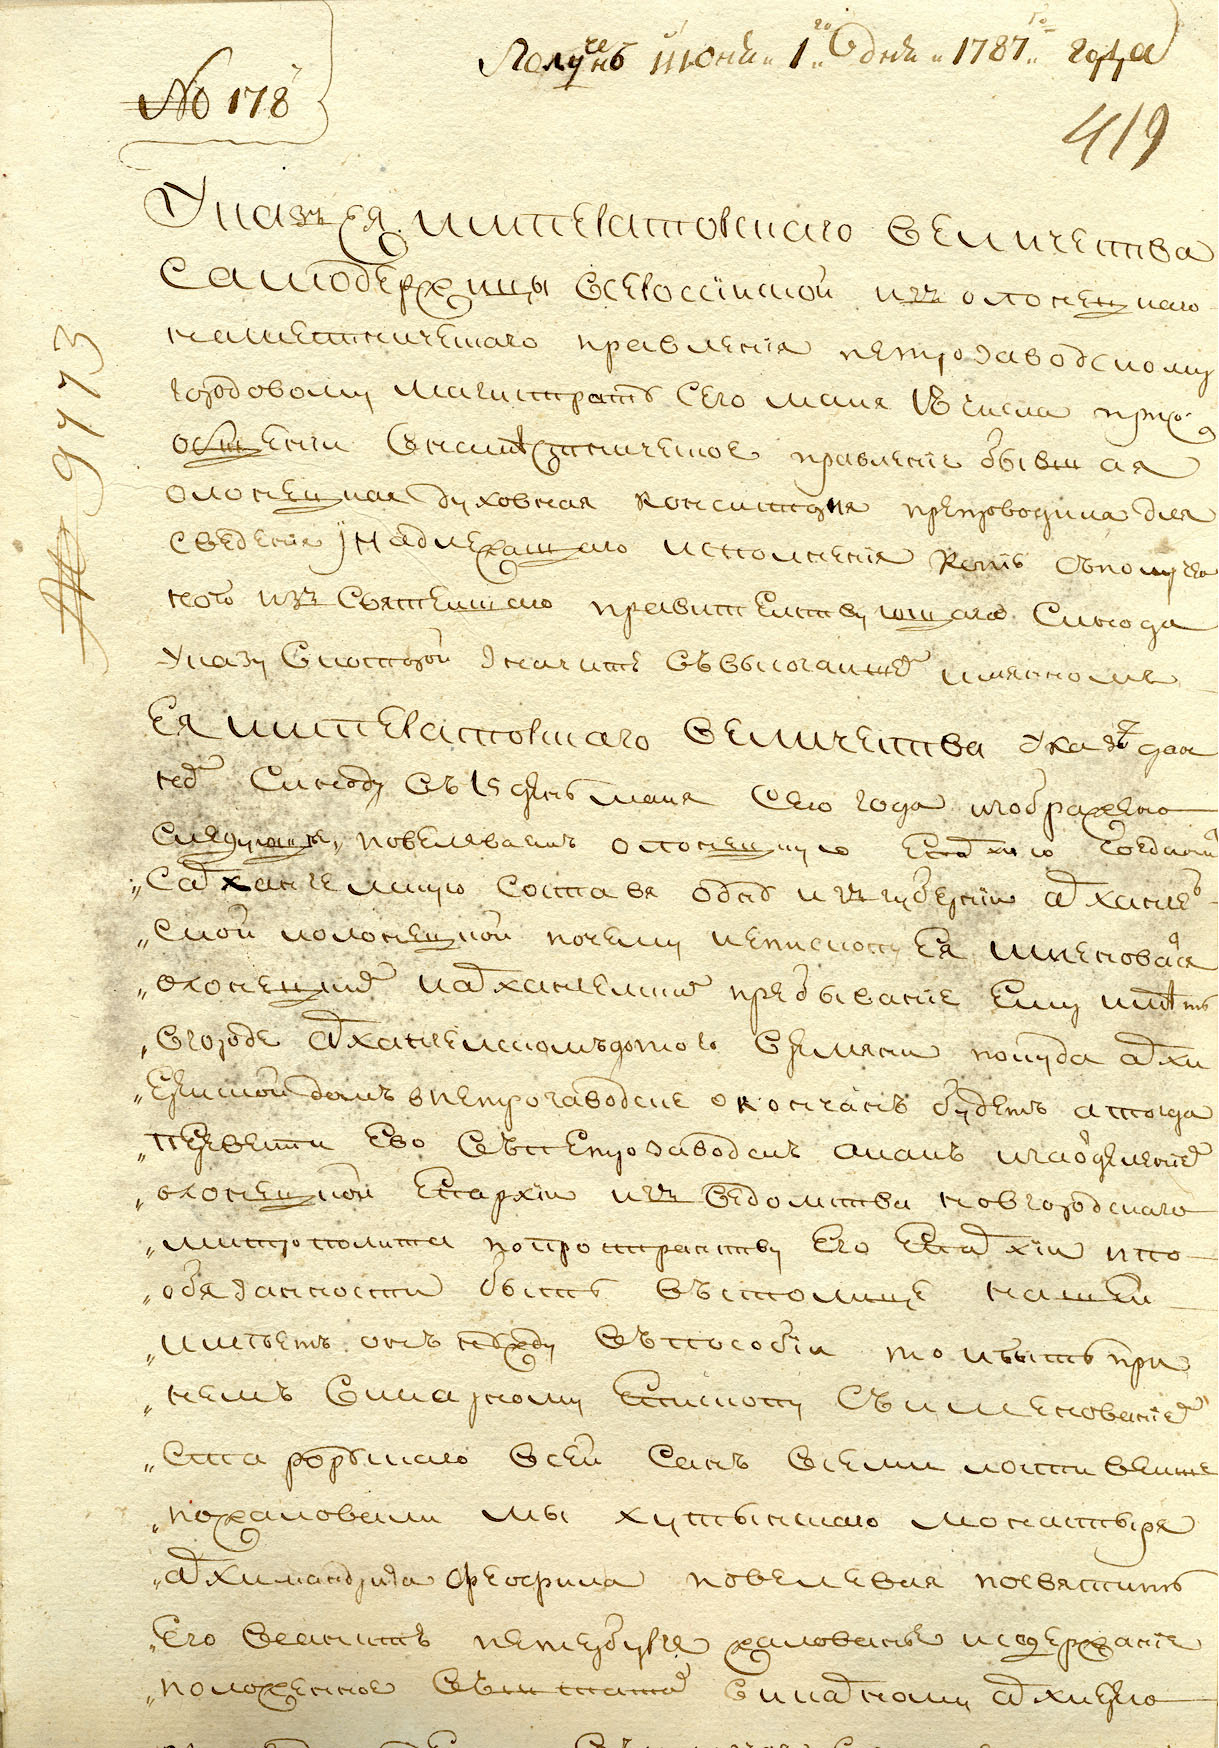 Полученъ июня 1го дня 1787го года
No 178
419
№ 9773
Указъ ея императорскаго величества
самодержицы всероссiйской изъ олонецкаго
наместническаго правленiя петрозаводскому
городовому магистрату Сего маия числа
внаместническое правленiе бывшая
олонецкая духовная консисторiя препроводила для
сведенiя инадлежащаго исполненiя копiю съполучен
ного изъ Святейшаго правительствующаго Синода
указу вкоторой значитъ въ имянномъ
Ея императорскаго величества указе дан
номъ Синоду въ 15 день маия сего года изображено
следующее, повелеваемъ олонецкую епархию соединить
„сархангельскую составя одну изъ губернiи арханге
„ской иолонецкой почему иепископу ея имяноватся
„олонецкимъ иархангельскимъ пребыванiе ему иметь
„вгороде архангельскомъ дотого времяни покуда архи
„ерейской домъ впетрозаводске оконченъ будетъ атогда
„перевести его въпетрозаводскъ акакъ заотделенiемъ
„олонецкой епархiи изъ ведомства новгородскаго
„митрополита попространству его епархiи ипо
„обязанности быть въстолице нашей
„имѣетъ онъ нужду въпособiи то ибыть при
„немъ викарному епископу съимянованiемъ
„старорускаго всей санъ всемилостивейше
„пожаловали мы хутынскаго монастыря
„архимандрита феофила повелевая посвятить
„его всанктъ петербурге жалованье исодержанiе
„положенное въ штатѣ викарному архиерею